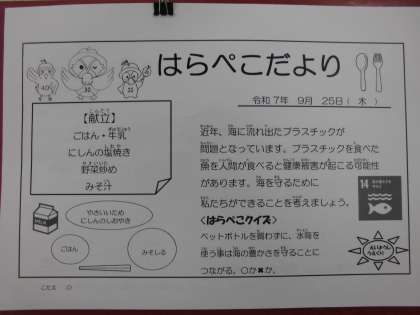 はらぺこだより
令和7年 9月 25日( 木 )
【献立】
ごはん・牛乳
にしんの塩焼き
野菜炒め
みそ汁
やさいいため
にしんのしおやき
ごはん
みそしる
近年、海に流れ出たプラスチックが
問題となっています。プラスチックを食べた
魚を人間が食べると健康被害が起こる可能性
があります。海を守るために
私たちができることを考えましょう。
<はらぺこクイズ>
ペットボトルを買わずに、水筒を
使う事は海の豊かさを守ることに
つながる。○か✖か。
14
こたえ ○